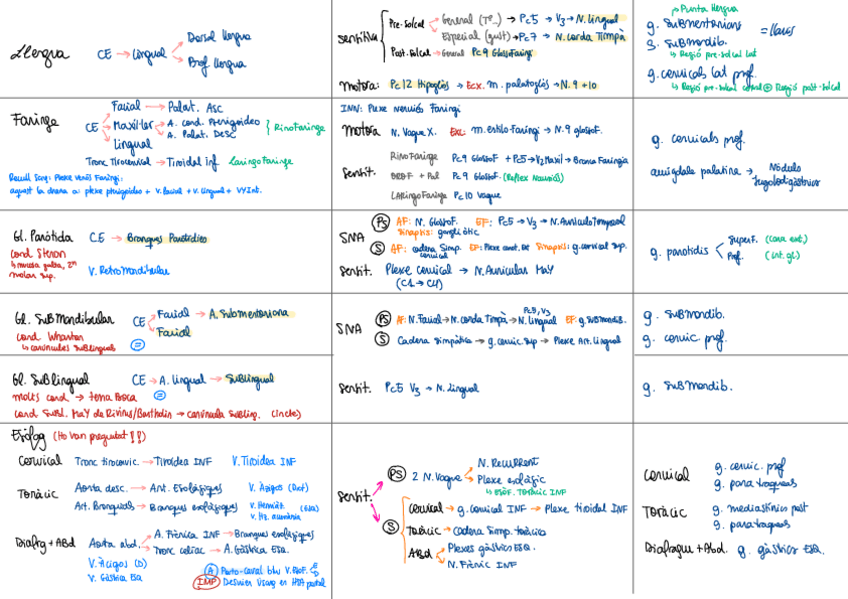 Llengua
CE → Lingual
Dorsal llengua
Prof llengua
sensitiva
Pre-Solcal
General (Tº_) → Pc5 → V3 → N. Lingual
Especial (gust) → Pc7 → N. corda Timpà
Post-Solcal
General Pc9 Glossofaringi
motora: Pc12 Hipoglòs → Ecx. m. palatoglòs → N. 9 + 10
→ Punta llengua
g. Submentonians
g. Submandib.
→ Regió pre-solcal lat
g. cervicals lat prof.
→ Regió pre-solcal central ⊕ Regió post-solcal
Faringe
CE
Facial → Palat. Asc
Maxil·lar
A. cond. Pterigoideo
A. Palat. Desc
Lingual
RinoFaringe
Tronc tirocervical → Tiroidal Inf.
LaringoFaringe
Recull Sang: Plexe Venós Faringi:
aquest la drena a: plexe pterigoideo + V. facial + V. lingual + VYInt.
INN: Plexe nerviós Faringi
motora N. Vague X. Exc: m. estilo-Faringi → N. 9 glossof.
Sensit.
RinoFaringe Pc9 Glossof + Pc5 → V2 Maxil → Branca Faringia
OroF + Pal Pc9 Glossof. (Reflex Nauseós)
LaRingoFaringe Pc10 Vague
g. cervicals prof.
amígdala palatina → Nòdulo jugulodigàstrico
Gl. Paròtida
CE → Branques Parotídies
cond Stenon
V. RetroMandibular
SNA
PS AF: N. Glossof. EF: Pc5 → V3 → N. AuriculoTemporal
Sinapsis: gangli òtic
S AF: cadena Simp. cervical Sinapsis: g. cervical sup.
Sensit. Plexe cervical → N. Auricular MaY
(C1 → C4)
g. parotidis
SuperF. (cara ext.)
Prof. (int. gl.)
Gl. SubMandibular
CE
Facial → A. Submentoniana
Facial
cond Wharton
↳ carúncules sublinguals
=
SNA
PS AF: N. Facial → N. corda Timpà → N. Lingual EF: g. subMandib.
Pc5, V3
S Cadena Simpàtica → g. cervic. Sup → Plexe Art. Lingual
g. Submandib.
g. cervic. prof.
Gl. SubLingual
CE → A. Lingual → Sublingual
molts cond → terra Boca
=
cond Subl. MaY de Rivinus/Bartholin → carúncula subling.
Sensit. Pc5 V3 → N. Lingual
g. Submandib.
Esòfag (Ho van preguntar!!)
Cervical Tronc tirocervic. → Tiroidea INF V. Tiroidea INF
Toràcic
Aorta desc. → Art. Esofàgiques
Art. Bronquials → Branques esofàgiques
V. Àzigos
V. Hemiàz
Diafrg + Abd
Aorta abd.
A. Frènica INF → Branques esofàgiques
Tronc celíac → A. Gàstrica Esq.
V. Àzigos (D)
V. Gàstrica Esq
IMP
Sensit.
PS 2 N. Vague
N. Recurrent
Plexe esofàgic
↳ esòf. Toràcic INF
S
Cervical → g. cervical INF → Plexe tiroidal INF
Toràcic → Cadena Simp. toràcica
Abd
Plexes gàstrics ESQ.
N. Frènic INF
Cervical
g. cervic. prof
g. paratraqueals
Toràcic
g. mediastínics post
g. paratraqueals
Diafragma + Abd. g. gàstrics ESQ.